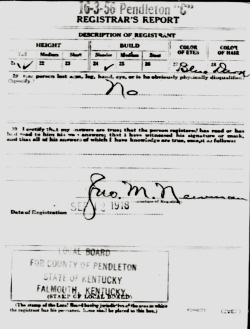 16-3-56 Pendleton "C"
REGISTRAR'S REPORT
DESCRIPTION OF REGISTRANT
HEIGHT BUILD COLOR OF EYES COLOR OF HAIR
Tall Medium Short Slender Medium Stout
21 22 23 24 25 26 27 Blue 28
29 person lost arm, leg, hand, eye, or is he obviously physically disqualified?
(Specify.)
No
30. I certify that my answers are true; that the person registered has read or has
had read to him his answers; that I have witnessed his signature or mark,
and that all of his answers of which I have knowledge are true, except as follows:
Jno. M. Newman
Date of Registration SEP 12 1918
LOCAL BOARD
FOR COUNTY OF PENDLETON
STATE OF KENTUCKY
FALMOUTH, KENTUCKY
(STAMP OF LOCAL BOARD)
(The stamp of the Local Board having jurisdiction of the area in which
the registrant has his permanent home shall be placed in this box.)
(OVER)